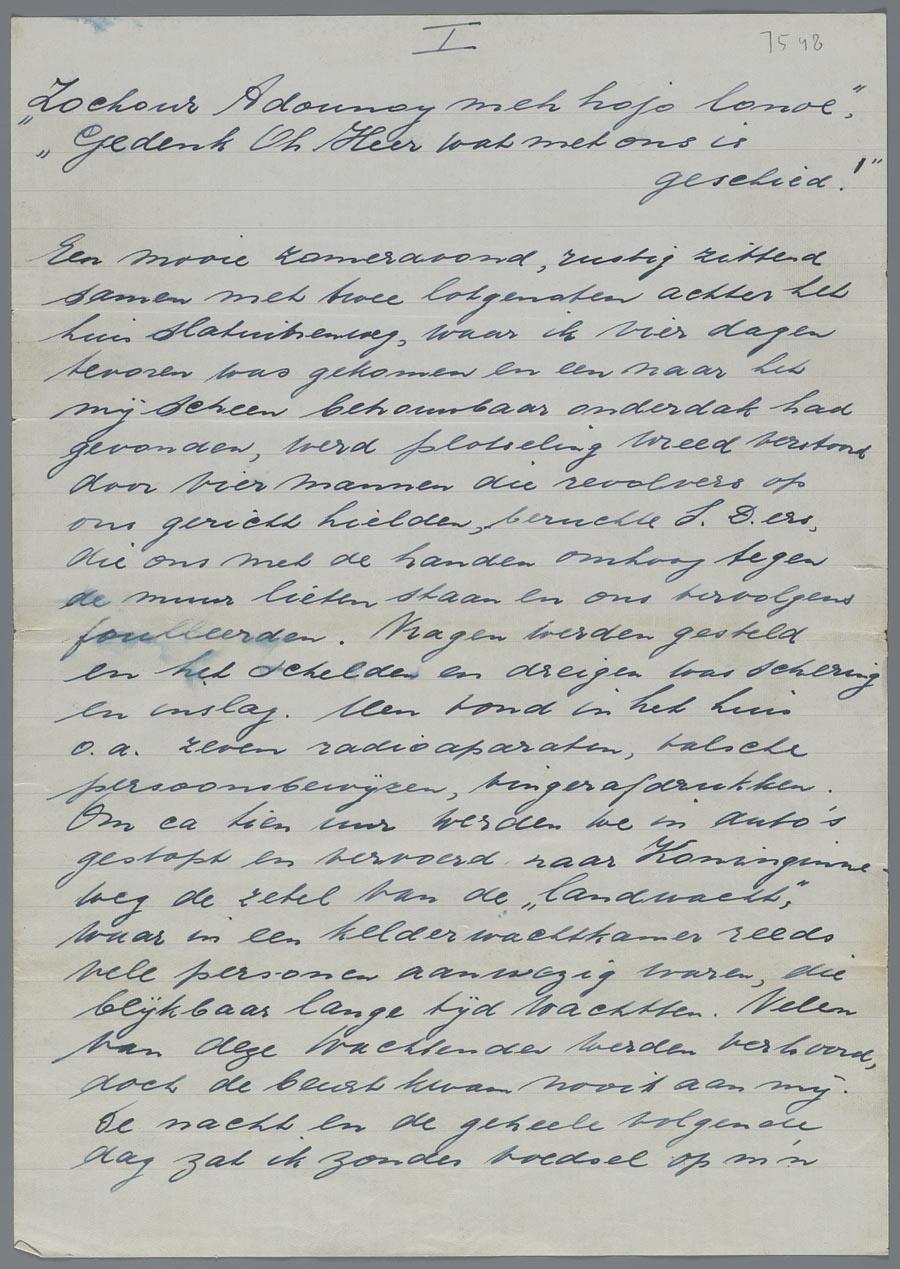 I
7548
„Zochour Adounoy meh hojo lonoe",
„Gedenk Oh Heer wat met ons is
geschied!"
Een mooie zomeravond, rustig zittend
samen met twee lotgenoten achter het
huis, waar ik vier dagen
tevoren was gekomen en een naar het
mij scheen betrouwbaar onderdak had
gevonden, werd plotseling wreed verstoord
door vier mannen die revolvers op
ons gericht hielden, beruchte S.D.ers,
die ons met de handen omhoog tegen
de muur lieten staan en ons vervolgens
fouilleerden. Vragen werden gesteld
en het schelden en dreigen was schering
en inslag. Men vond in het huis
o.a. zeven radioaparaten, valsche
persoonsbewijzen, vingerafdrukken.
Om ca tien uur werden we in auto's
gestopt en vervoerd naar Koninginne-
weg de zetel van de „landwacht",
waar in een kelderwachtkamer reeds
vele personen aanwezig waren, die
blijkbaar lange tijd wachtten. Velen
van deze wachtenden werden verhoord,
doch de beurt kwam nooit aan mij.
De nacht en de geheele volgende
dag zat ik zonder voedsel op m'n